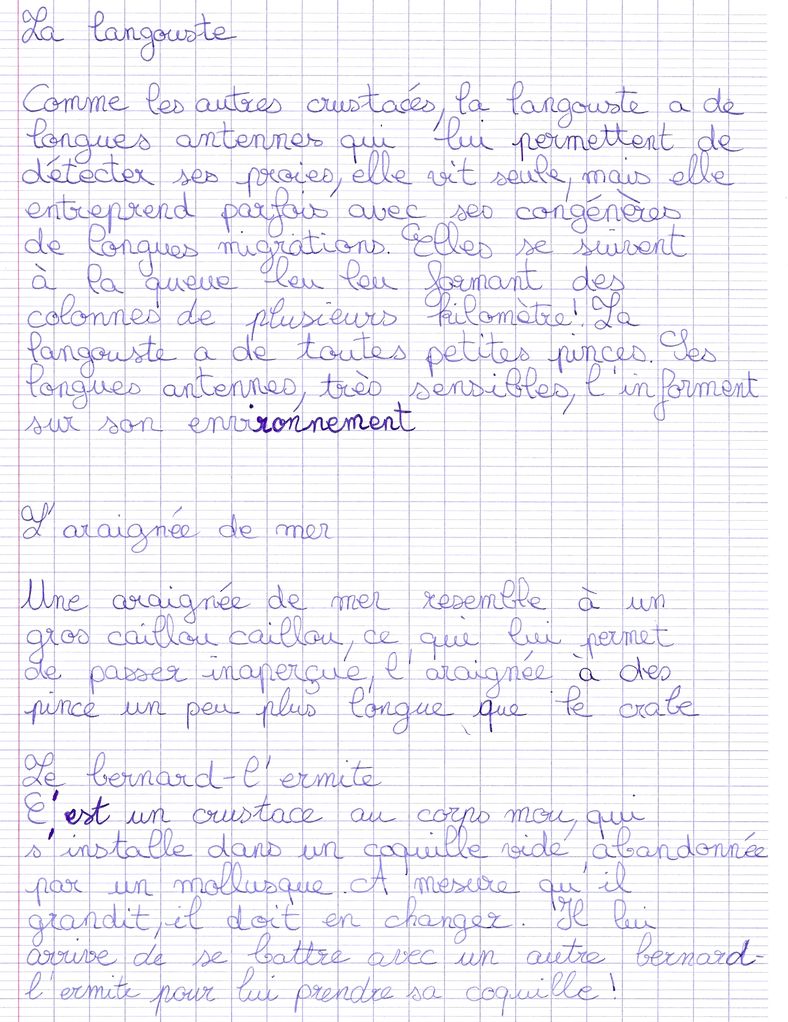 La langouste
Comme les autres crustacés, la langouste a de
longues antennes qui lui permettent de
détecter ses proies, elle vit seule, mais elle
entreprend parfois avec ses congénères
de longues migrations. Elles se suivent
à la queue leu leu formant des
colonnes de plusieurs kilomètre! La
langouste a de toutes petites pinces. Ses
longues antennes, très sensibles, l'informent
sur son environnement
L'araignée de mer
Une araignée de mer resemble à un
gros caillou caillou, ce qui lui permet
de passer inaperçue, l'araignée à des
pince un peu plus longue que le crabe
Le bernard-l'ermite
C'est un crustace au corps mou, qui
s'installe dans un coquille vide abandonnée
par un mollusque. A mesure qu'il
grandit, il doit en changer. Il lui
arrive de se battre avec un autre bernard-
l'ermite pour lui prendre sa coquille!